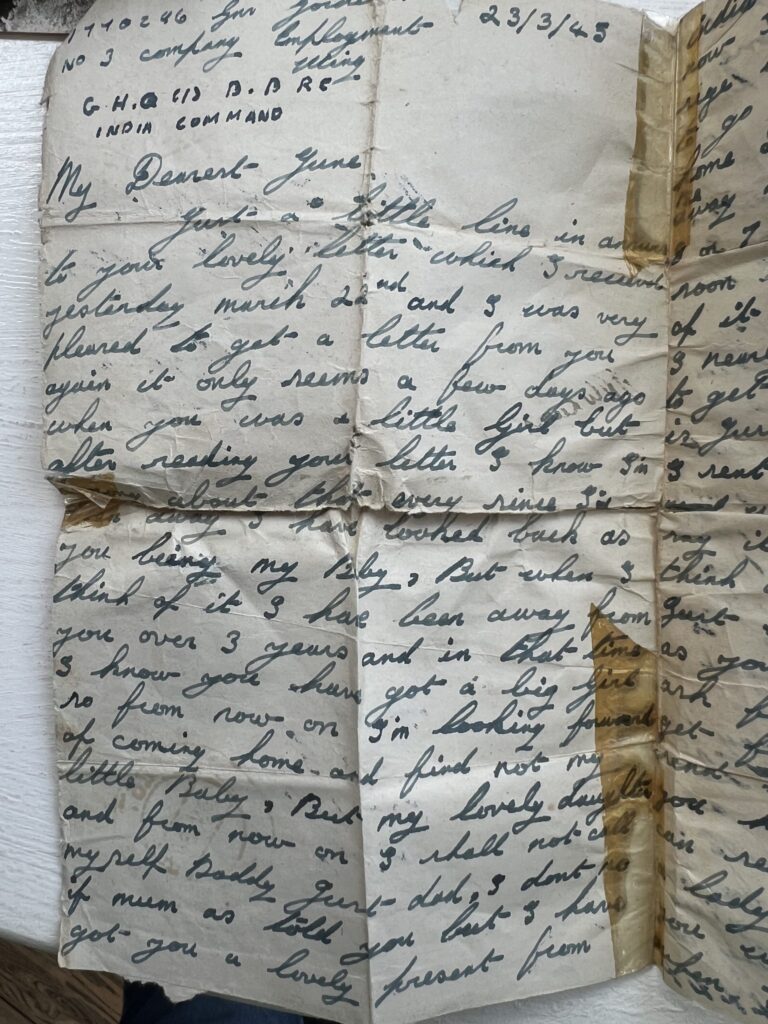 1770296 Gnr
No 3 company Employment
Wing
G.H.Q (1) B.B RE
INDIA COMMAND
23/3/45
My Dearest June
Just a little line in answer
to your lovely letter which I received
yesterday march 22nd and I was very
pleased to get a letter from you
again it only seems a few days ago
when you was a little Girl but
after reading your letter I know Im
about that every since Im
away I have looked back as
you being my Baby, But when I
think of it I have been away from
you over 3 years and in that time
I know you have got a big Girl
so from now on Im looking forward
of coming home and find not my
little Baby, But my lovely daughter
and from now on I shall not call
myself Daddy Just dad, I dont no
if mum as told you but I have
got you a lovely present from
now
to go
home
away
on
soon
of it
I
to get
is Just
I sent
my
think
Just
as you
ask
get
you
lady
you
when